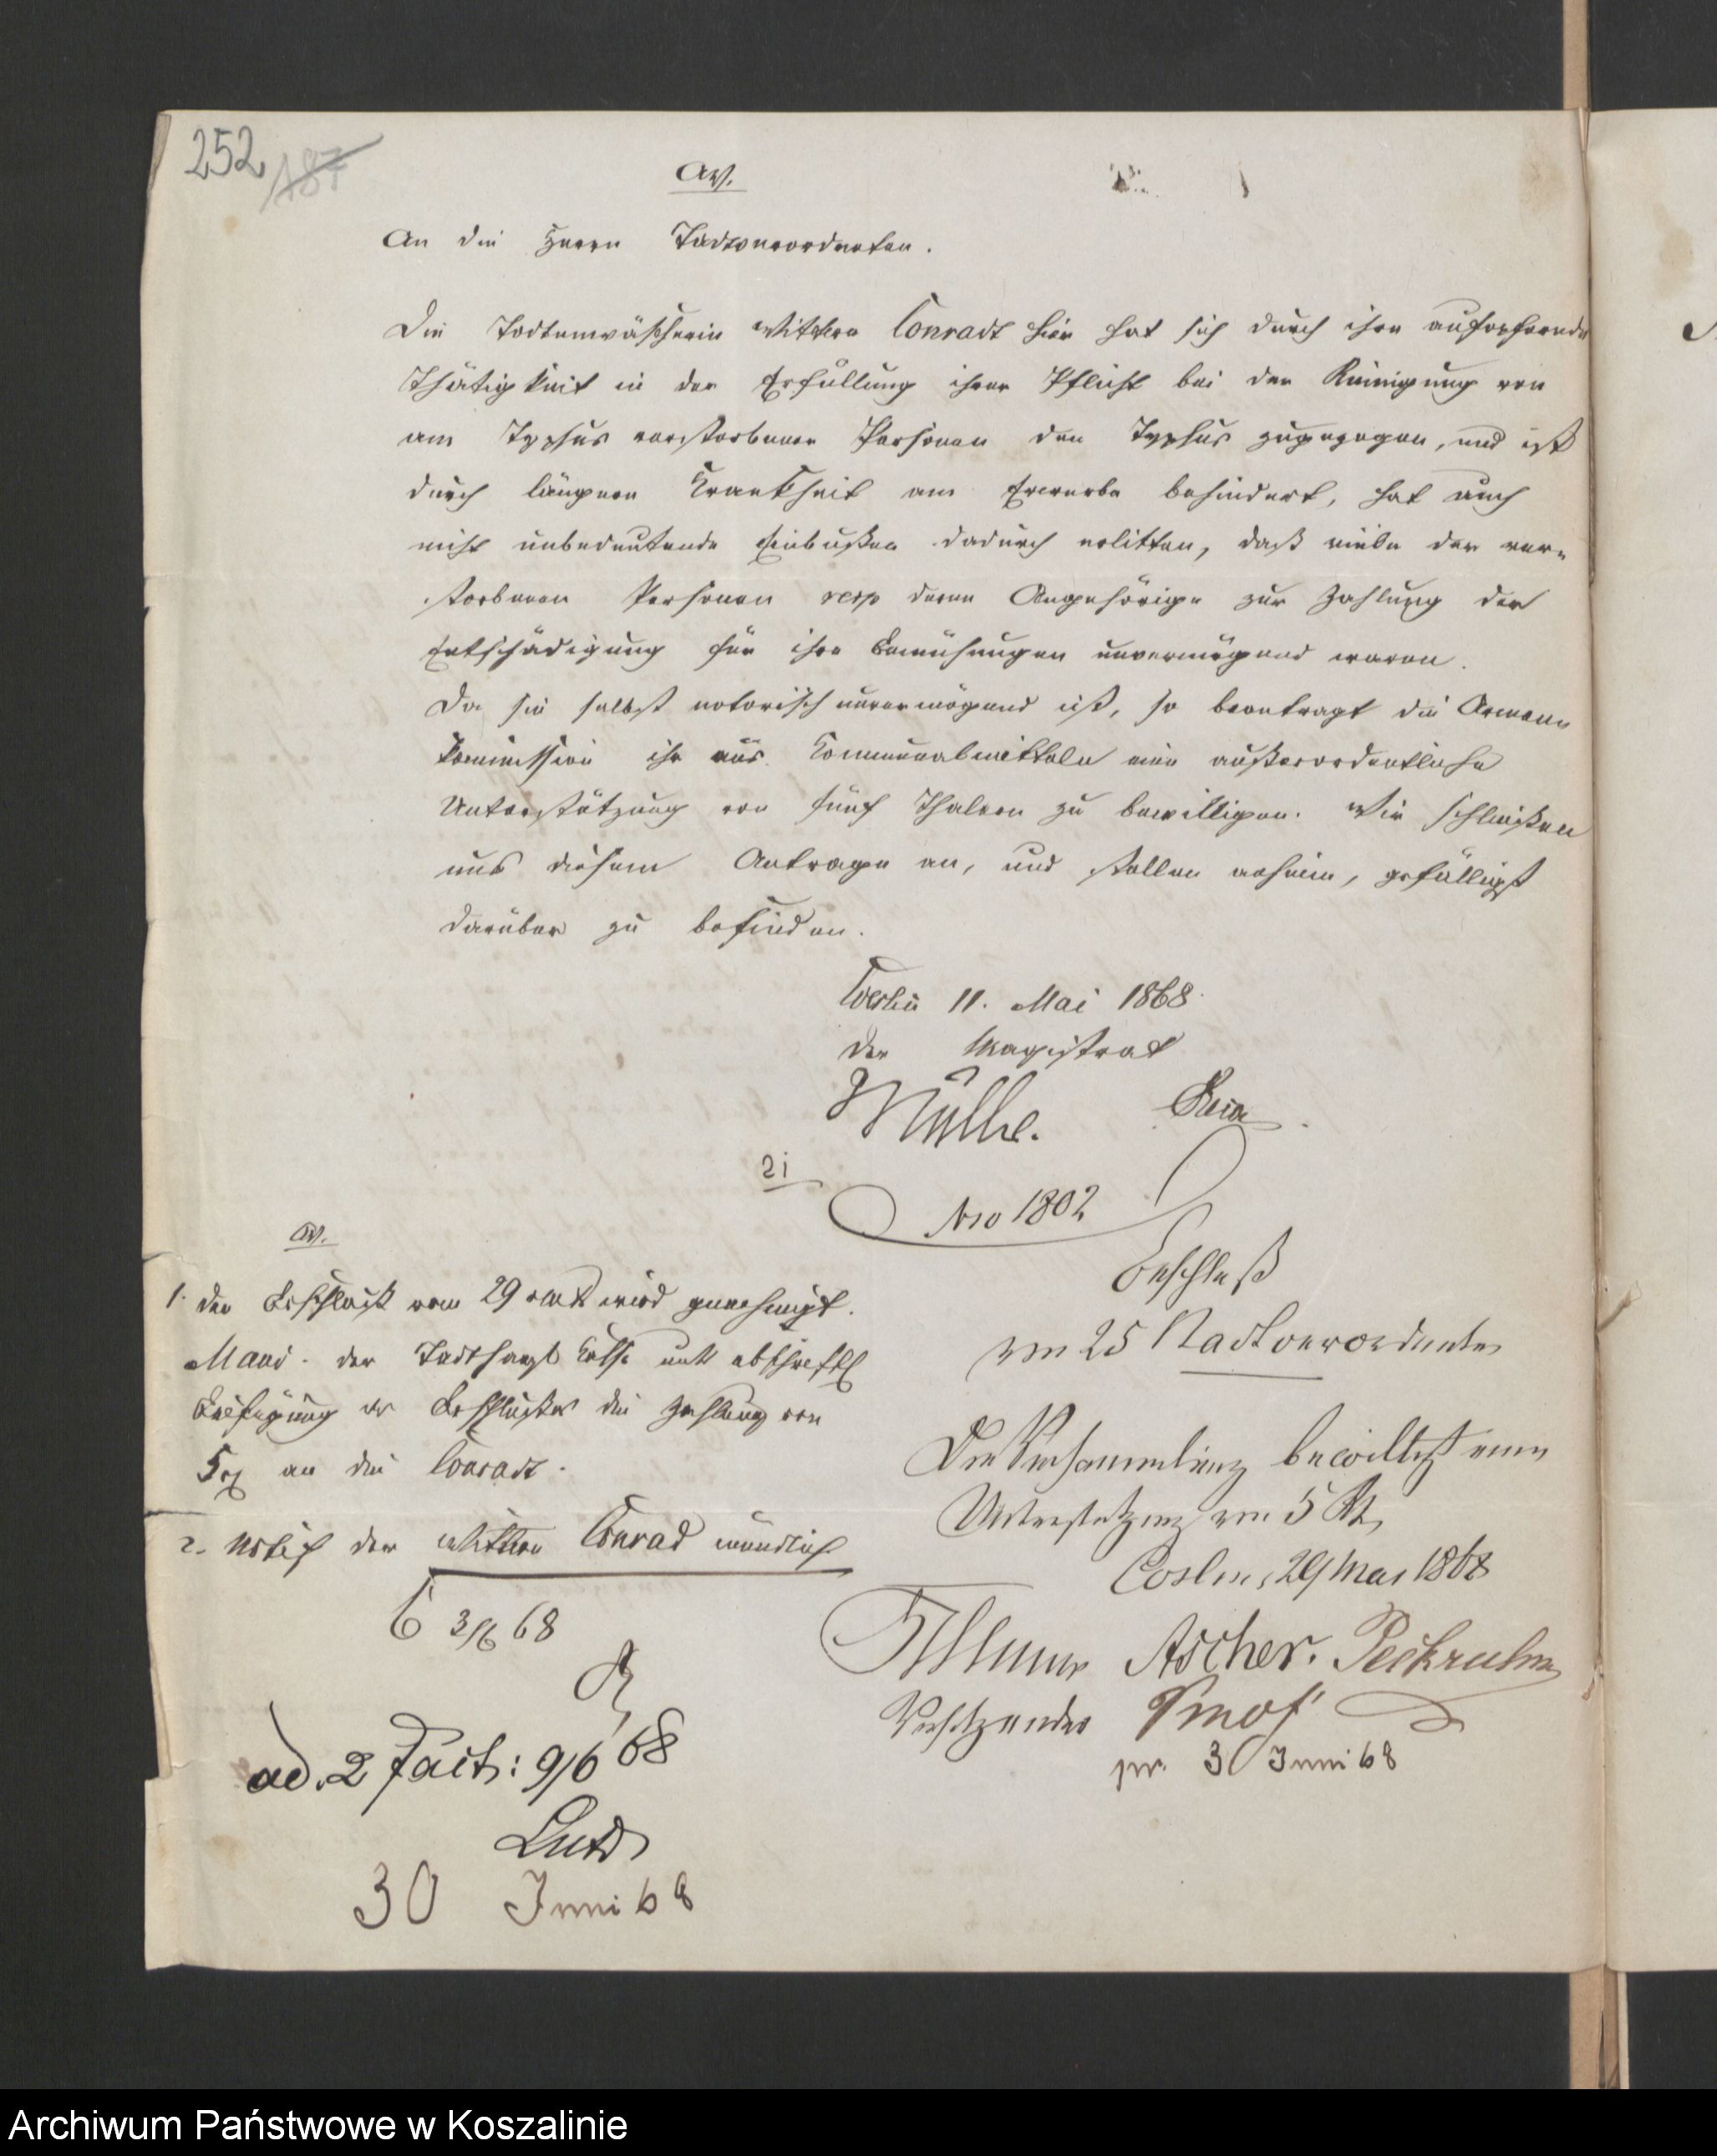 252
187
An die Herrn Stadtverordneten.
Die Todtenwäscherin Wittwe Conradt hier hat sich durch ihre aufopfernde
Thätigkeit in der Erfüllung ihrer Pflicht bei der Reinigung von
am Typhus verstorbenen Personen den Typhus zugezogen, und ist
durch längere Krankheit am Erwerbe behindert, hat auch
nicht unbedeutende Einbußen dadurch erlitten, daß viele der ver-
storbenen Personen resp deren Angehörige zur Zahlung der
Entschädigung für ihre Bemühungen unvermögend waren.
Da sie selbst notorisch unvermögend ist, so beantragt die Armen
Kommission ihr aus Kommunalmitteln eine außerordentliche
Unterstützung von fünf Thalern zu bewilligen. Wir schließen
uns diesem Antrage an, und stellen anheim, gefälligst
darüber zu befinden.
Coeslin 11. Mai 1868.
Der Magistrat
Müller.
2i
No 1802
Beschluß
von 25 Stadtverordneten
Die Versammlung bewilligt eine
Unterstützung von 5 Rt
Coslin, 29 Mai 1868
Ascher.
Vorsitzender
pr. 30 Juni 68
1. Der Beschluß vom 29 wird genehmigt.
Mand. der Stadthaupt Kasse unter abschriftl
Beifügung des Beschlusses die Zahlung von
5 an die Conradt.
2. Notif der Wittwe Conrad mündlich
C 3/6 68
ad. 2 fact: 9/6 68
30 Juni 68
Archiwum Państwowe w Koszalinie